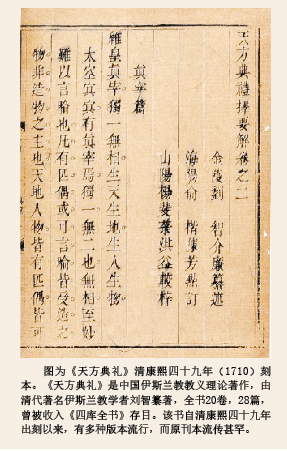 天方典禮擇要解卷之二
金陵劉 智介廉纂述
海 俞 楷 芳訂
山陽楊斐菉淇谷較梓
眞宰篇
維皇眞宰獨一無相生天生地生人生物
太空冥冥有眞宰焉獨一無二也無相至妙
難以言喻也凡有匹偶或可言喻皆受造之
物非造物之主也天地人物皆有匹偶皆可
图为《天方典礼》清康熙四十九年（1710）刻
本。《天方典礼》是中国伊斯兰教教义理论著作，由
清代著名伊斯兰教学者刘智纂著，全书20卷，28篇，
曾被收入《四库全书》存目。该书自清康熙四十九年
出刻以来，有多种版本流行，而原刊本流传甚罕。